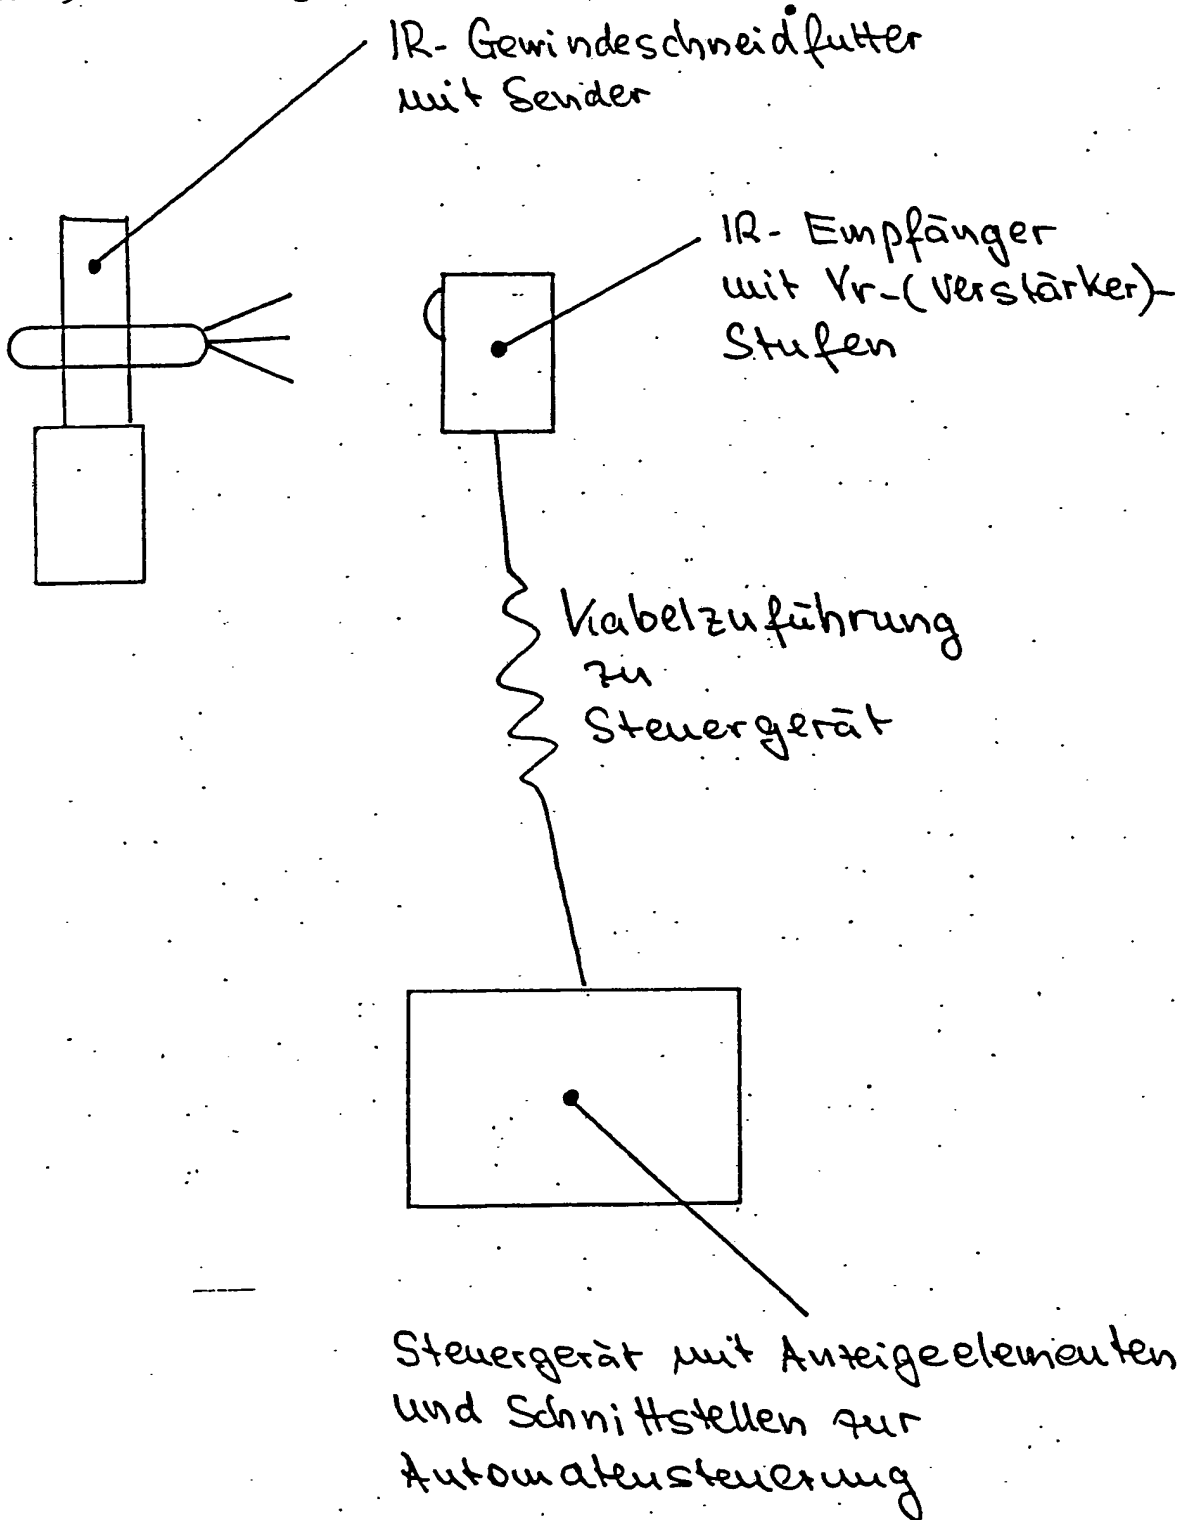 IR-Gewindeschneidfutter
mit Sender
IR-Empfänger
mit Vr-(Verstärker)-
Stufen
Kabelzuführung
zu
Steuergerät
Steuergerät mit Anzeigeelementen
und Schnittstellen zur
Automatensteuerung